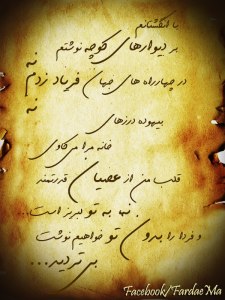 با انگشتانم
بر دیوارهای کوچه نوشتم
نه
در چهارراه های جهان فریاد زدم
نه
بیهوده درزهای
خانه مرا می کاوی
قلب من از عصیان قدرتمند
نه به تو لبریز است..
و فردا را بدون تو خواهیم نوشت
بی تردید...
Facebook/FardaeMa